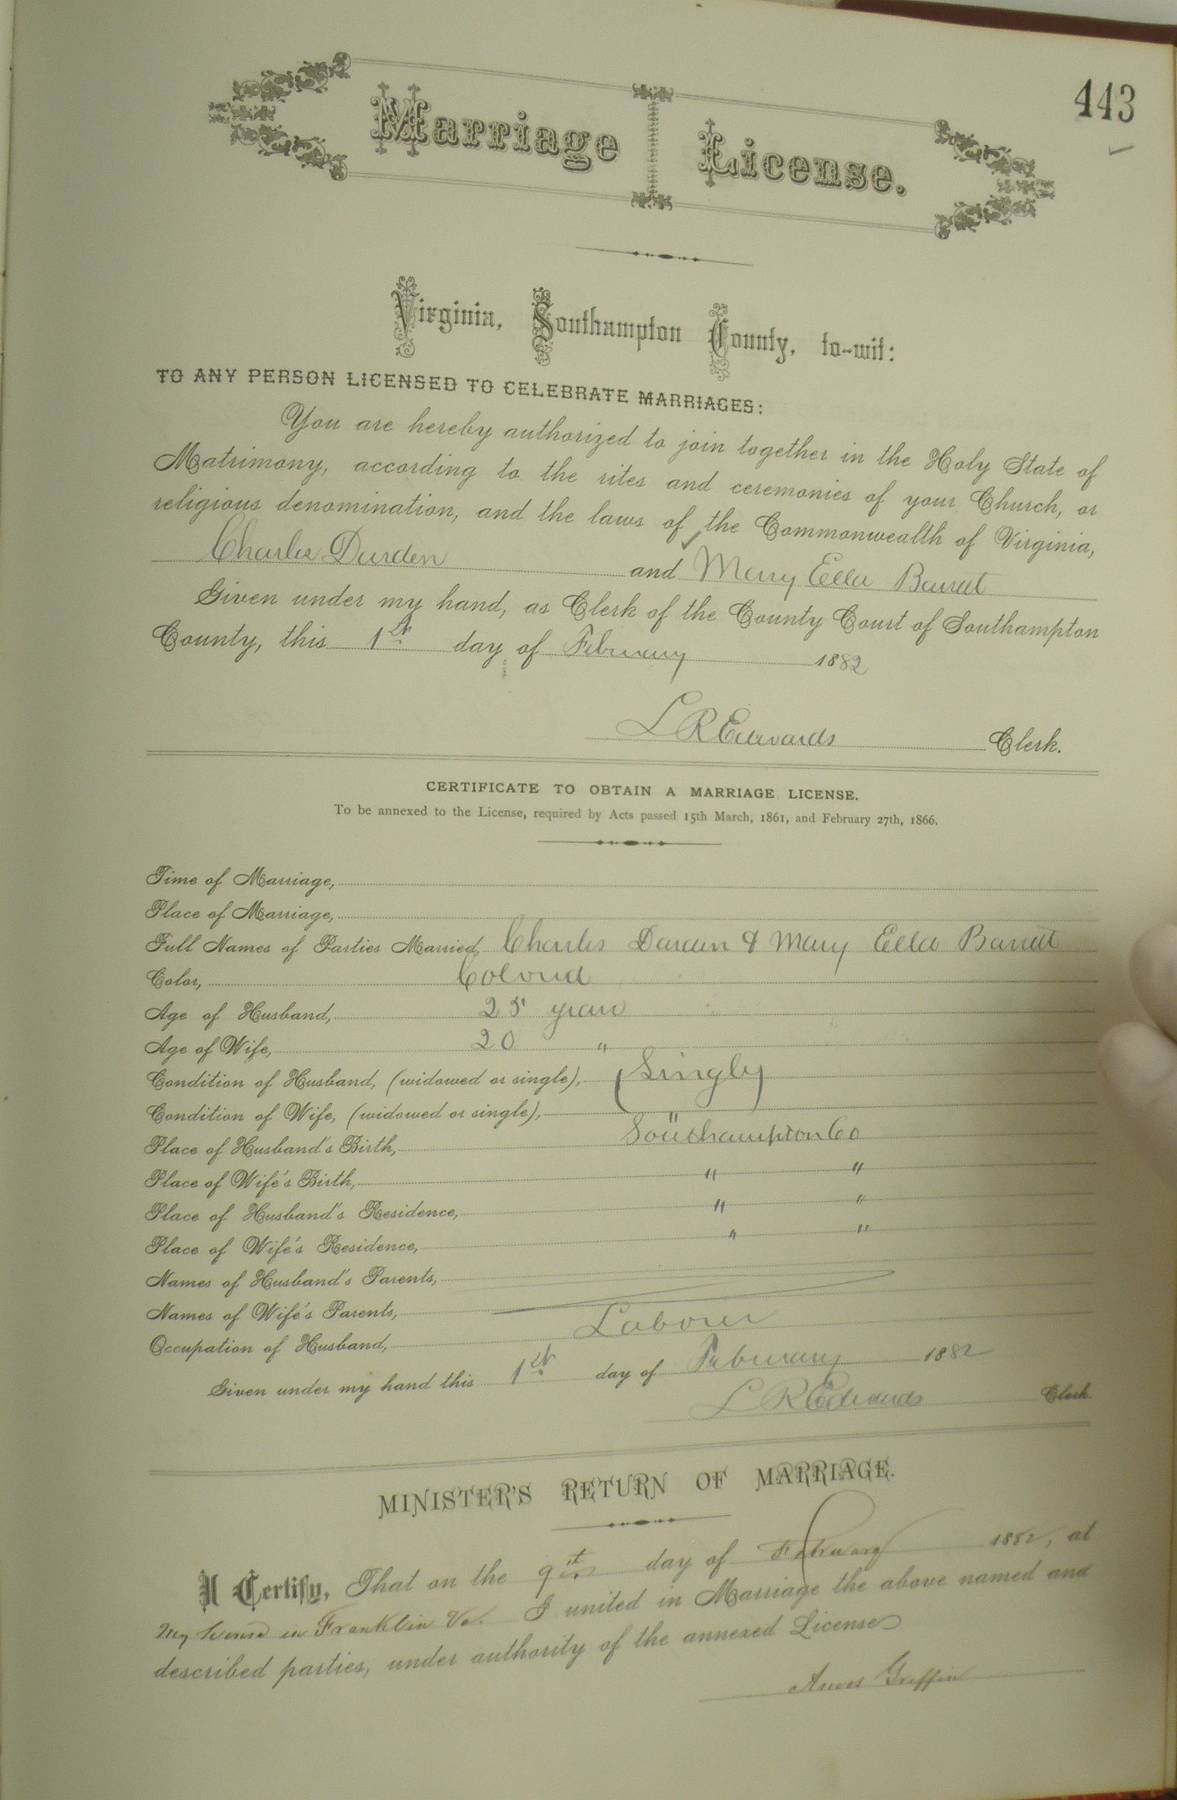 443
Marriage License.
Virginia, Southampton County, to-wit:
TO ANY PERSON LICENSED TO CELEBRATE MARRIAGES:
You are hereby authorized to join together in the Holy State of
Matrimony, according to the rites and ceremonies of your Church, or
religious denomination, and the laws of the Commonwealth of Virginia,
Charles Durden and Mary Ella Barrett
Given under my hand, as Clerk of the County Court of Southampton
County, this 1st day of February 1882
L R Edwards Clerk.
CERTIFICATE TO OBTAIN A MARRIAGE LICENSE.
To be annexed to the License, required by Acts passed 15th March, 1861, and February 27th, 1866.
Time of Marriage,
Place of Marriage,
Full Names of Parties Married, Charles Darden & Mary Ella Barrett
Color, Colored
Age of Husband, 25 years
Age of Wife, 20 "
Condition of Husband, (widowed or single), Singly
Condition of Wife, (widowed or single), "
Place of Husband's Birth, Southampton Co
Place of Wife's Birth, " "
Place of Husband's Residence, " "
Place of Wife's Residence, " "
Names of Husband's Parents,
Names of Wife's Parents,
Occupation of Husband, Laborer
Given under my hand this 1st day of February 1882
L R Edwards Clerk
MINISTER'S RETURN OF MARRIAGE.
I Certify, That on the 9 day of February 1882, at
My house in Franklin Va. I united in Marriage the above named and
described parties, under authority of the annexed License
Amos Griffin